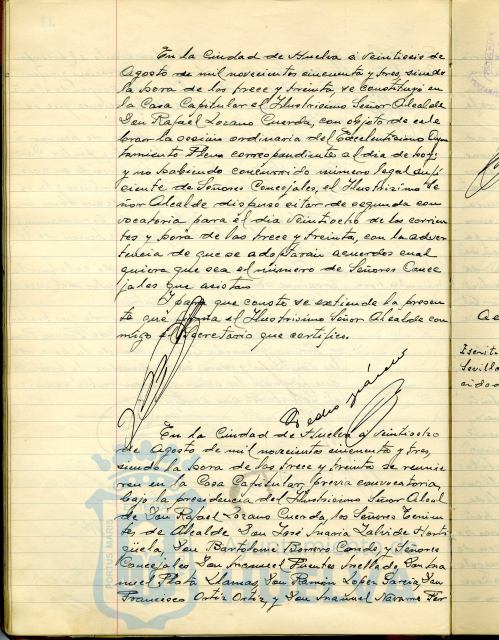 En la Ciudad de Huelva a veintiseis de
Agosto de mil novecientos cincuenta y tres, siendo
la hora de las trece y treinta, se constituyó en
la Casa Capitular el Ilustrisimo Señor Alcalde
Don Rafael Lozano Cuerda, con objeto de cele
brar la sesión ordinaria del Excelentisimo Ayun
tamiento Pleno correspondiente al dia de hoy;
y no habiendo concurrido número legal sufi
ciente de Señores Concejales, el Ilustrisimo Se
ñor Alcalde dispuso citar de segunda con
vocatoria para el dia veintiocho de los corrien
tes y hora de las trece y treinta, con la adver
tencia de que se adoptarán acuerdos cual
quiera que sea el número de Señores Conce
jales que asistan
Y para que conste se extiende la presen
te que firma el Ilustrisimo Señor Alcalde con
migo el Secretario que certifico.
Pedro
En la Ciudad de Huelva a veintiocho
de Agosto de mil novecientos cincuenta y tres,
siendo la hora de las trece y treinta se reunie
ron en la Casa Capitular, previa convocatoria,
bajo la presidencia del Ilustrisimo Señor Alcal
de Don Rafael Lozano Cuerda, los Señores Tenien
tes de Alcalde Don José Maria
Don Bartolomé Borrero Conde, y Señores
Concejales Don Manuel Fuentes Don Ma
nuel Plata Llamas, Don Ramón López Garcia, Don
Francisco Ortiz Ortiz, y Don Manuel Navarro Per
PORTUS MARIS